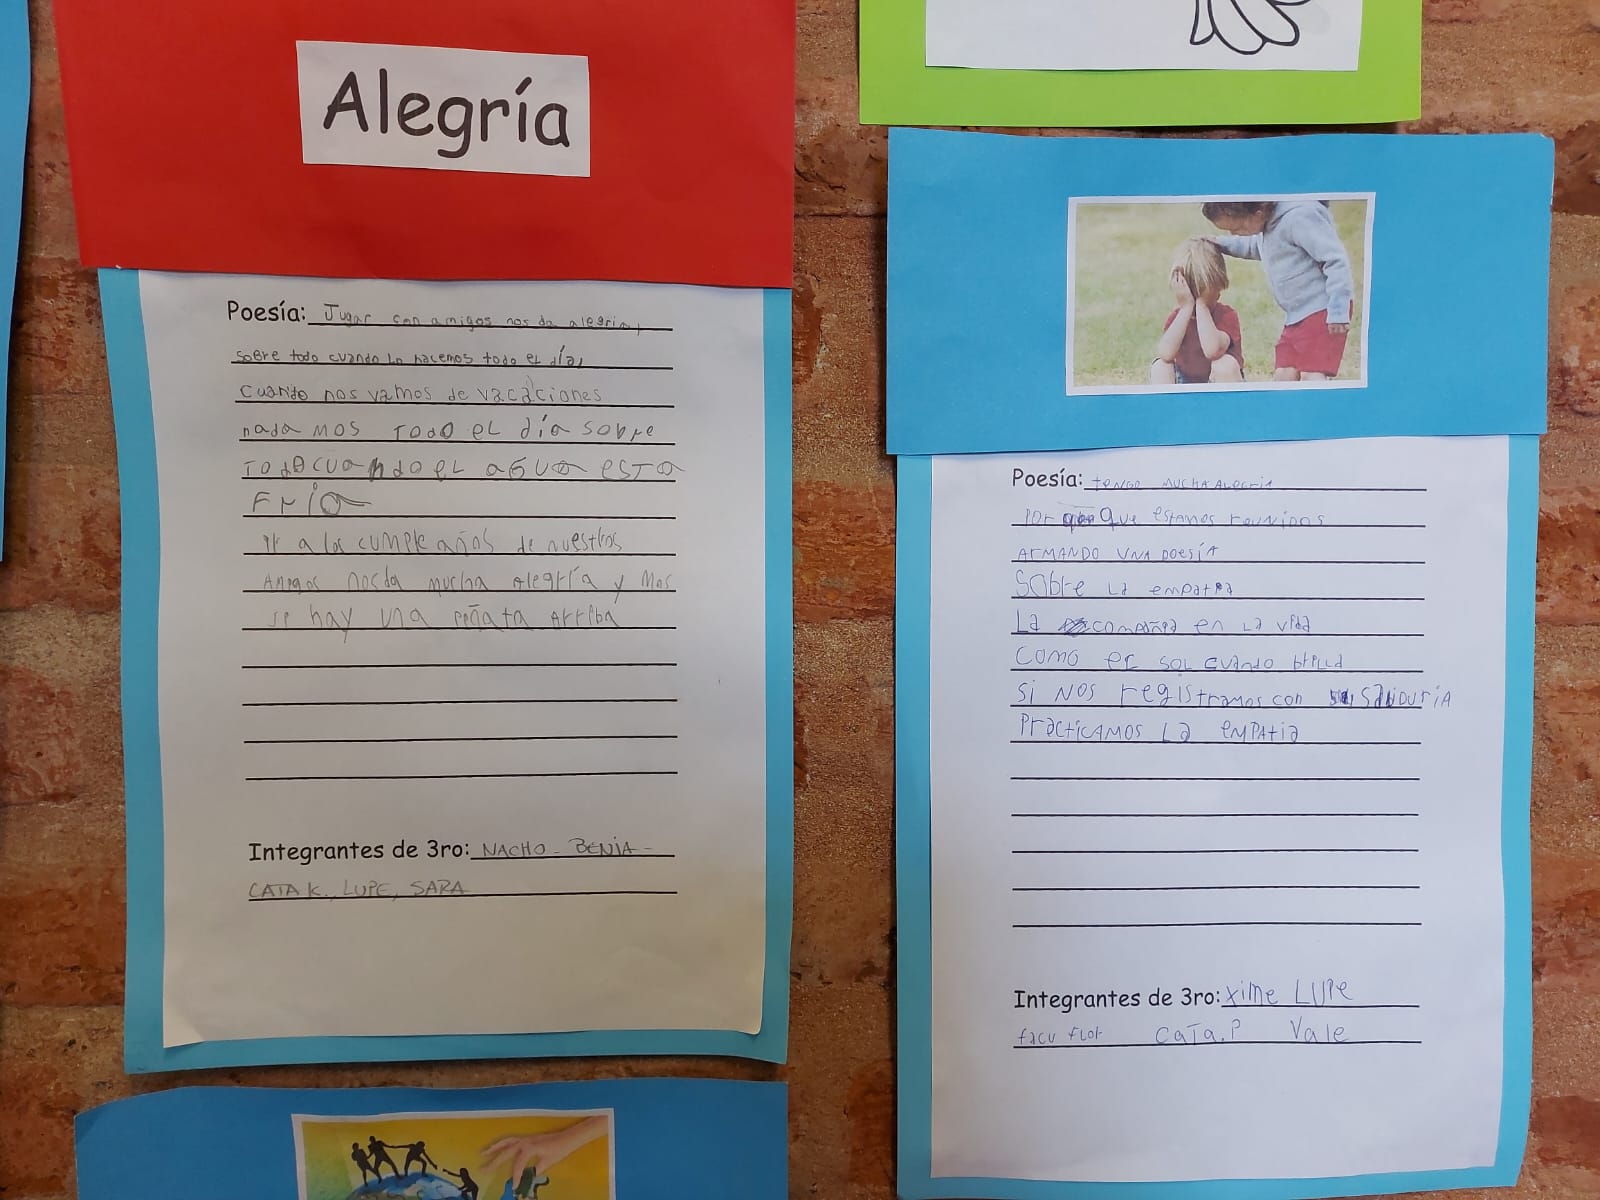 Alegría
Poesía: Jugar con amigos nos da alegria,
sobre todo cuando lo hacemos todo el día,
cuando nos vamos de vacaciones
nada mos todo el día sobre
todo cuando el agua esta
fría
ir a los cumple años de nuestros
Amigos nos da mucha Alegría y mas
si hay una peñata Arriba
Integrantes de 3ro: NACHO - BENJA -
CATA K., LUPE, SARA
Poesía: tengo MUCHA ALegria
Por que estamos reunidos
ARMANDO UNA poesÍA
Sobre La empatia
La compañia en La vida
como el sol cuando brilla
Si NOS registramos con SABIDURIA
Practicamos La emPAtia
Integrantes de 3ro: xime LUPe
facu flor cata.P Vale